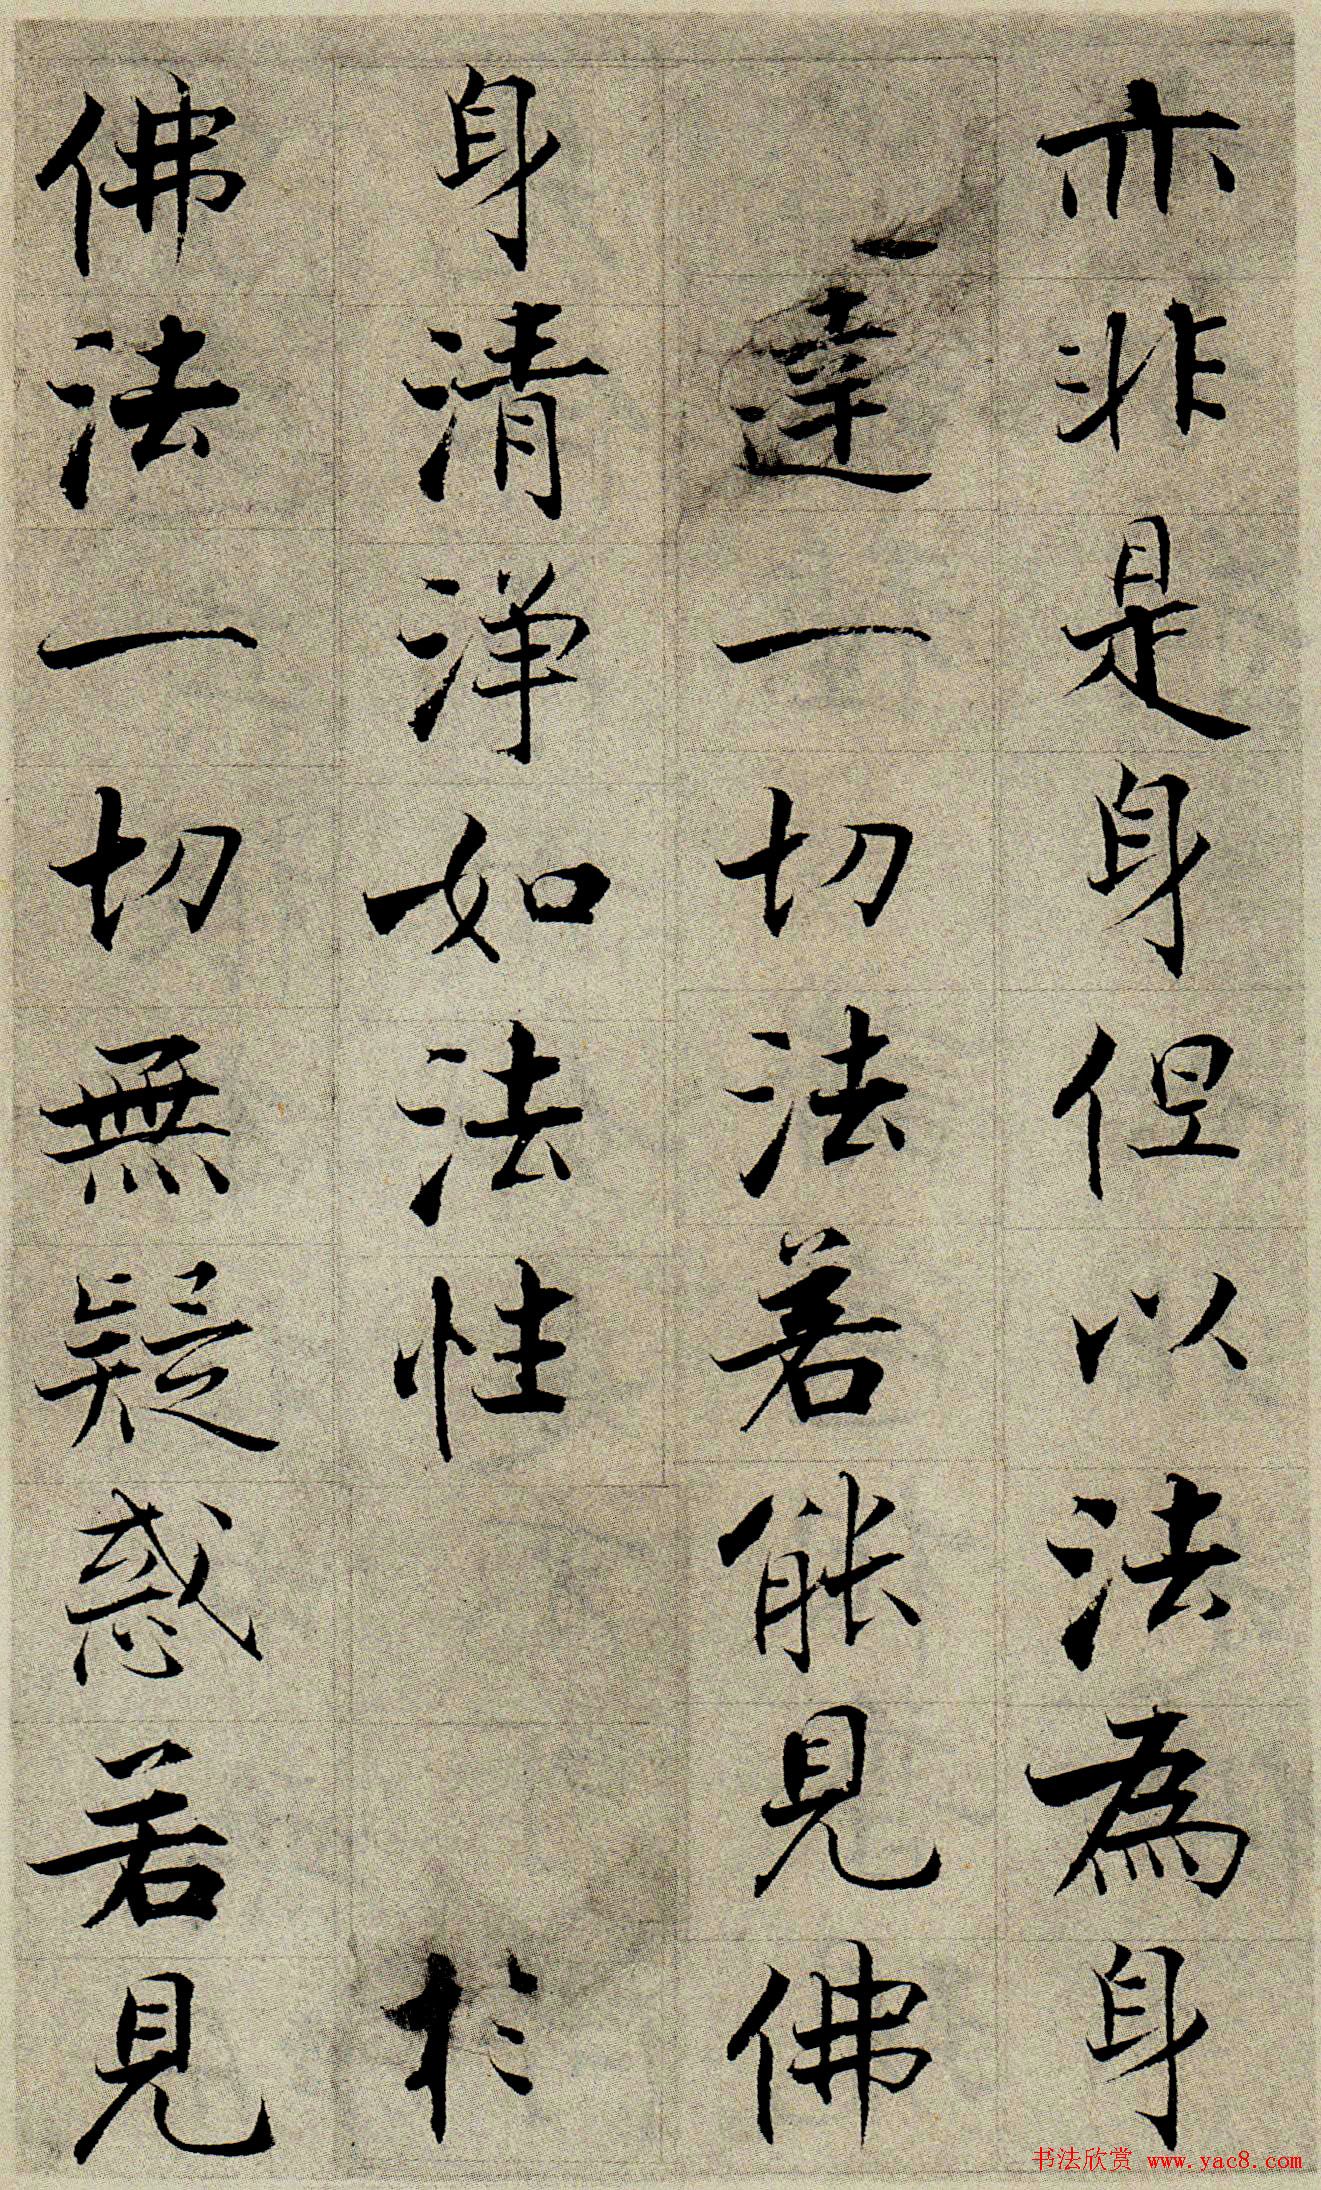 亦非是身但以法為身
達一切法若能見佛
身清淨如法性
於
佛法一切無疑惑若見
书法欣赏 www.yac8.com